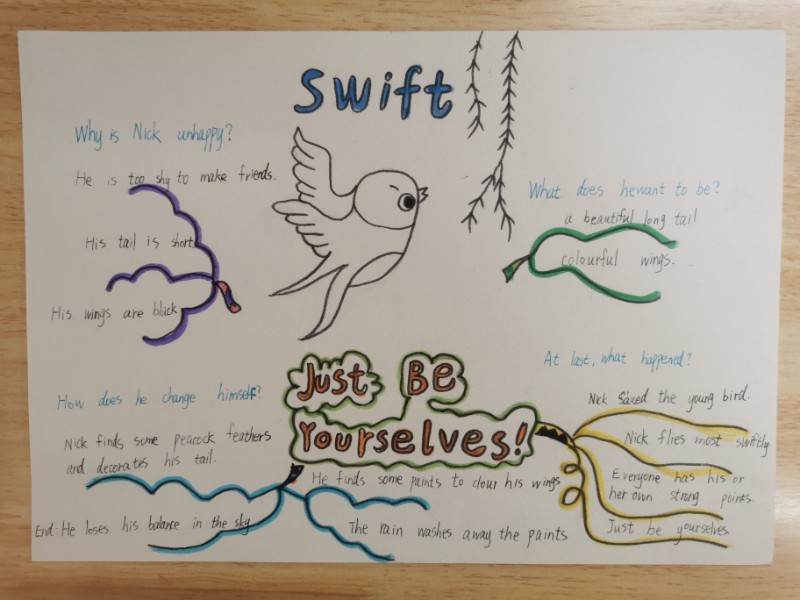 Swift
Why is Nick unhappy?
He is too shy to make friends.
His tail is short
His wings are black
What does he want to be?
a beautiful long tail
colourful wings.
Just Be
Yourselves!
How does he change himself?
Nick finds some peacock feathers
and decorates his tail.
End: He loses his balance in the sky
He finds some paints to clour his wings
The rain washes away the paints
At last, what happened?
Nick Saxed the young bird.
Nick flies most swiftly
Everyone has his or
her own strong points.
Just be yourselves.